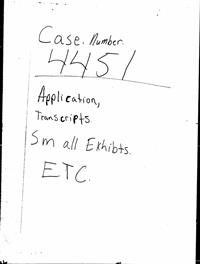 Case. Number.
4451
Application,
Transcripts.
Small Exhibts.
ETC.